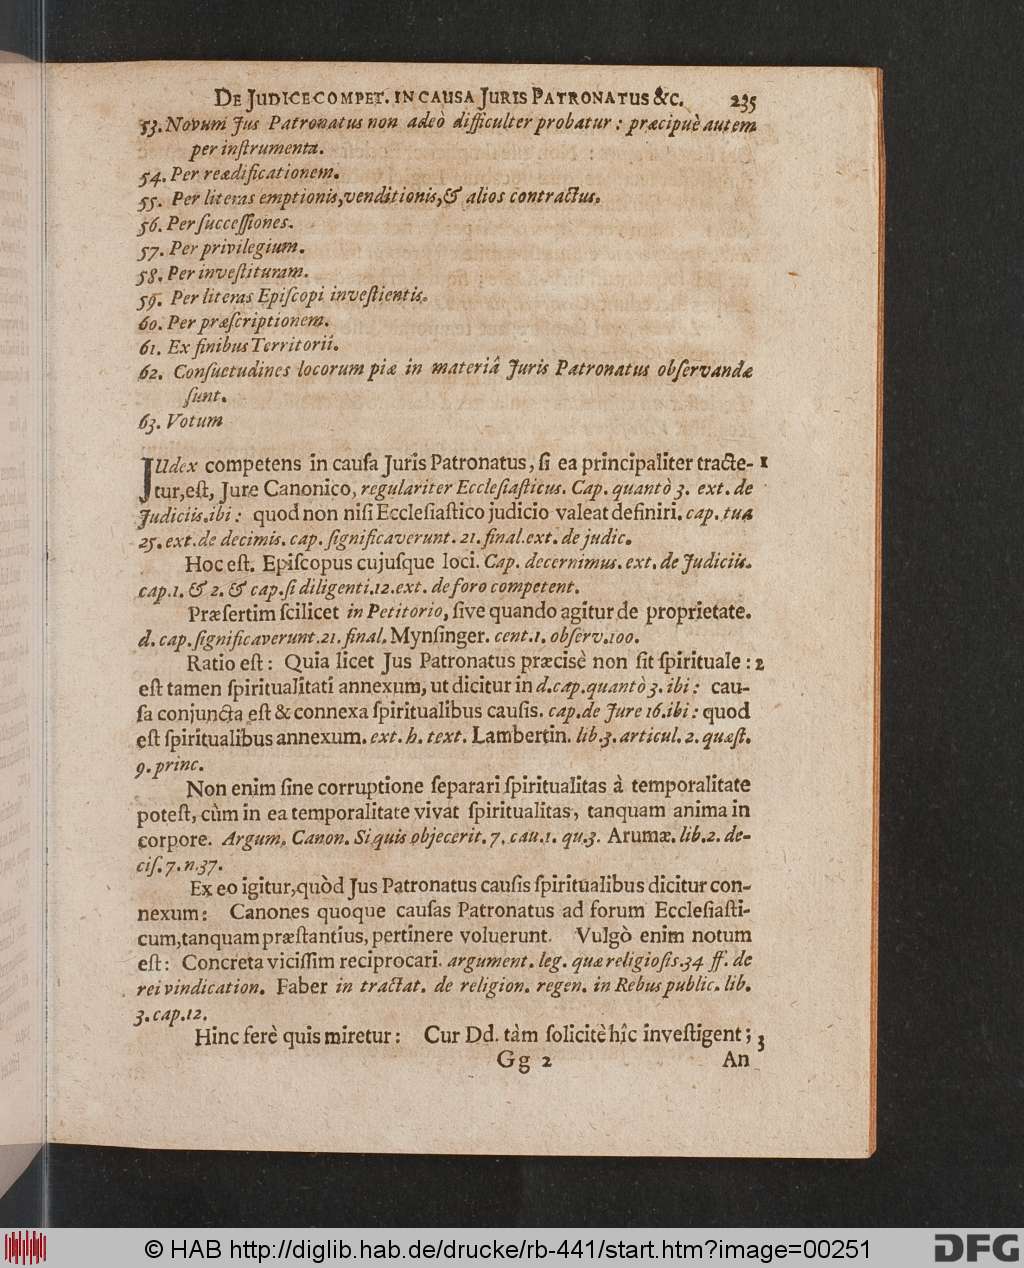 DE JUDICE COMPET. IN CAUSA JURIS PATRONATUS &c. 235
53. Novum Jus Patronatus non adeò difficulter probatur : præcipuè autem
per inſtrumenta.
54. Per reædificationem.
55. Per literas emptionis, venditionis, & alios contractus.
56. Per ſucceſſiones.
57. Per privilegium.
58. Per inveſtituram.
59. Per literas Epiſcopi inveſtientis.
60. Per præſcriptionem.
61. Ex finibus Territorii.
62. Conſuetudines locorum piæ in materiâ Juris Patronatus obſervandæ
ſunt.
63. Votum
JUdex competens in cauſa Juris Patronatus, ſi ea principaliter tracte- 1
tur, eſt, Jure Canonico, regulariter Eccleſiaſticus. Cap. quantò 3. ext. de
Judiciis. ibi : quod non niſi Eccleſiaſtico judicio valeat definiri. cap. tua
25. ext. de decimis. cap. ſignificaverunt. 21. final. ext. de judic.
Hoc eſt. Epiſcopus cujuſque loci. Cap. decernimus. ext. de Judiciis.
cap. 1. & 2. & cap. ſi diligenti. 12. ext. de foro competent.
Præſertim ſcilicet in Petitorio, ſive quando agitur de proprietate.
d. cap. ſignificaverunt. 21. final. Mynſinger. cent. 1. obſerv. 100.
Ratio eſt : Quia licet Jus Patronatus præcisè non ſit ſpirituale : 2
eſt tamen ſpiritualitati annexum, ut dicitur in d. cap. quantò 3. ibi : cau-
ſa conjuncta eſt & connexa ſpiritualibus cauſis. cap. de Jure 16. ibi : quod
eſt ſpiritualibus annexum. ext. h. text. Lambertin. lib. 3. articul. 2. quæſt.
9. princ.
Non enim ſine corruptione ſeparari ſpiritualitas à temporalitate
poteſt, cùm in ea temporalitate vivat ſpiritualitas, tanquam anima in
corpore. Argum. Canon. Si quis objecerit. 7. cau. 1. qu. 3. Arumæ. lib. 2. de-
ciſ. 7. n. 37.
Ex eo igitur, quòd Jus Patronatus cauſis ſpiritualibus dicitur con-
nexum : Canones quoque cauſas Patronatus ad forum Eccleſiaſti-
cum, tanquam præſtantius, pertinere voluerunt. Vulgò enim notum
eſt : Concreta viciſſim reciprocari. argument. leg. quæ religioſis. 34 ff. de
rei vindication. Faber in tractat. de religion. regen. in Rebus public. lib.
3. cap. 12.
Hinc ferè quis miretur : Cur Dd. tàm ſolicitè hîc inveſtigent ; 3
Gg 2 An
© HAB http://diglib.hab.de/drucke/rb-441/start.htm?image=00251 DFG